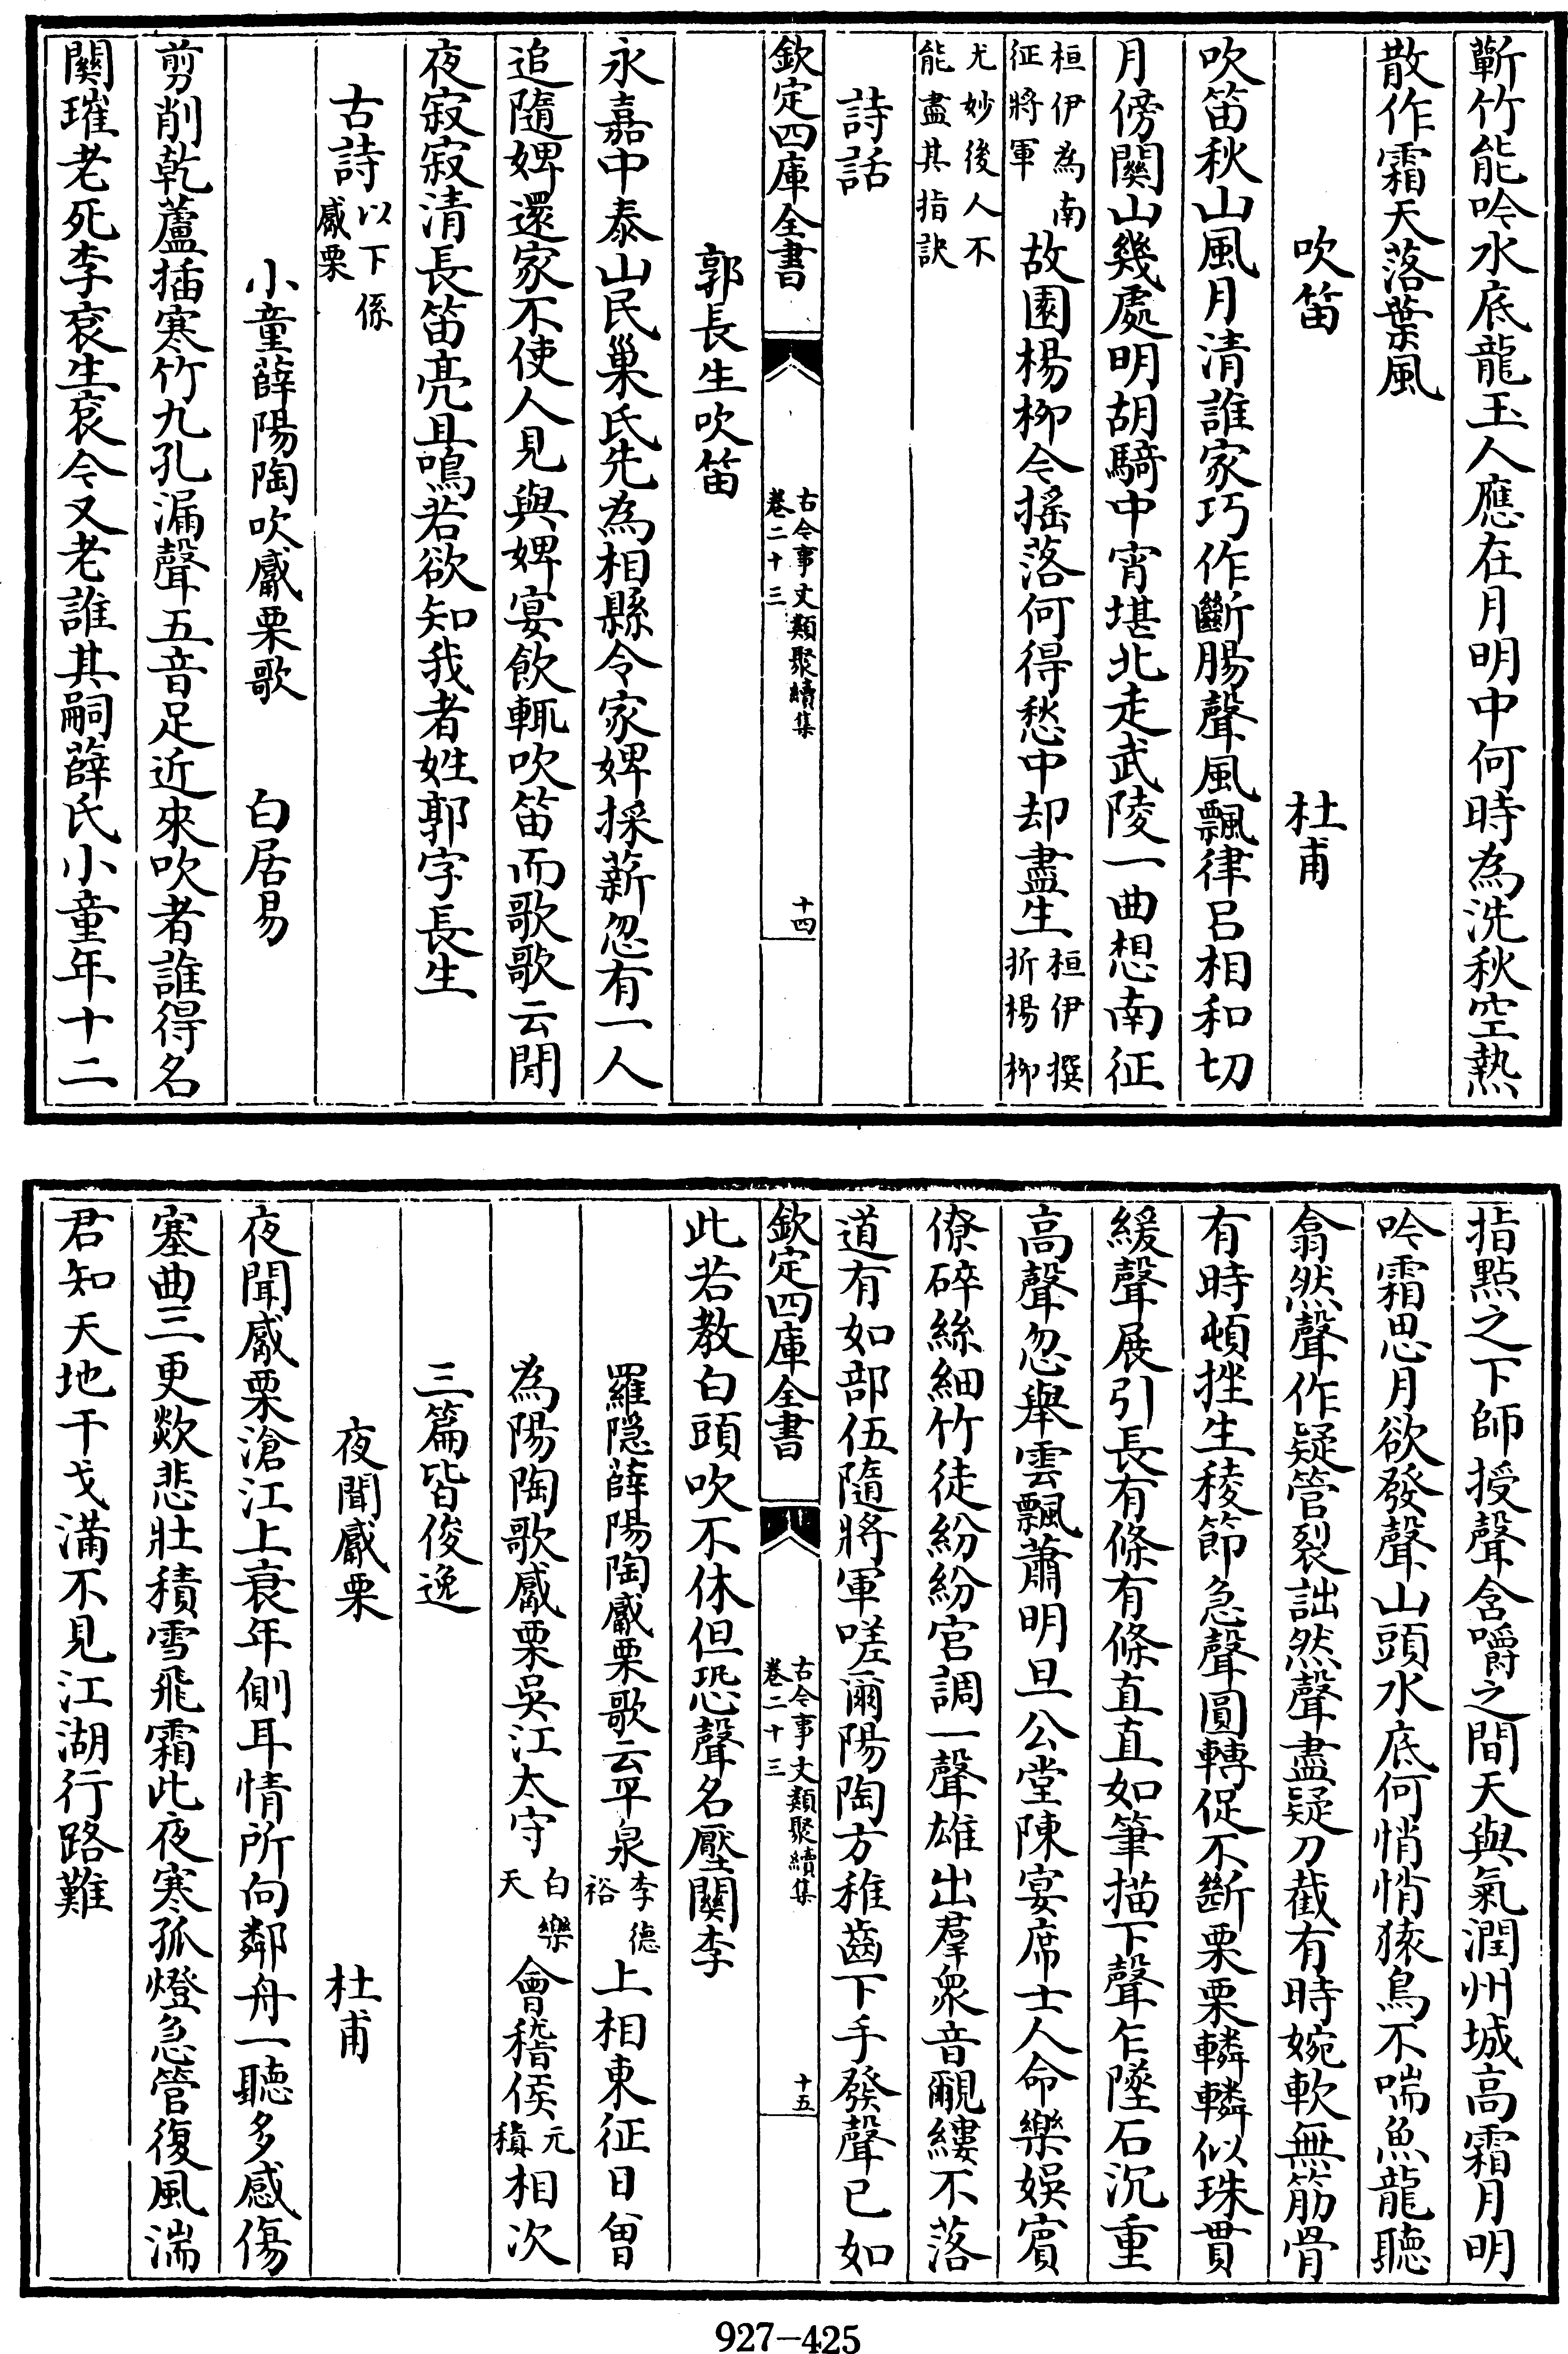 斬竹能吟水底龍玉人應在月明中何時為洗秋空熱
散作霜天落葉風
吹笛　杜甫
吹笛秋山風月清誰家巧作斷腸聲風飄律呂相和切
月傍關山幾處明胡騎中宵堪北走武陵一曲想南征
桓伊為南
征將軍
故園楊柳今搖落何得愁中却盡生
桓伊撰
折楊柳
尤妙後人不
能盡其指訣
詩話
欽定四庫全書
古今事文類聚續集
卷二十三
十四
郭長生吹笛
永嘉中泰山民巢氏先為相縣令家婢採薪忽有一人
追隨婢還家不使人見與婢宴飲輒吹笛而歌歌云閒
夜寂寂清長笛亮且鳴若欲知我者姓郭字長生
古詩
以下係
觱栗
小童薛陽陶吹觱栗歌　白居易
剪削乾蘆插寒竹九孔漏聲五音足近來吹者誰得名
關璀老死李衮生衮今又老誰其嗣薛氏小童年十二
指點之下師授聲含嚼之間天與氣潤州城高霜月明
吟霜思月欲發聲山頭水底何悄悄猿鳥不喘魚龍聽
翕然聲作疑管裂詘然聲盡疑刀截有時婉軟無筋骨
有時頓挫生稜節急聲圓轉促不斷栗栗轔轔似珠貫
緩聲展引長有條有條直直如筆描下聲乍墜石沉重
高聲忽舉雲飄蕭明旦公堂陳宴席士人命樂娛賓
僚碎絲細竹徒紛紛宫調一聲雄出羣衆音覼縷不落
道有如部伍隨將軍嗟爾陽陶方稚齒下手發聲已如
欽定四庫全書
古今事文類聚續集
卷二十三
十五
此若教白頭吹不休但恐聲名壓關李
羅隠薛陽陶觱栗歌云平泉
李德
裕
上相東征日曾
為陽陶歌觱栗吳江太守
白樂
天
會稽侯
元
稹
相次
三篇皆俊逸
夜聞觱栗　杜甫
夜聞觱栗滄江上衰年側耳情所向鄰舟一聽多感傷
塞曲三更歘悲壯積雪飛霜此夜寒孤燈急管復風湍
君知天地干戈滿不見江湖行路難
927-425